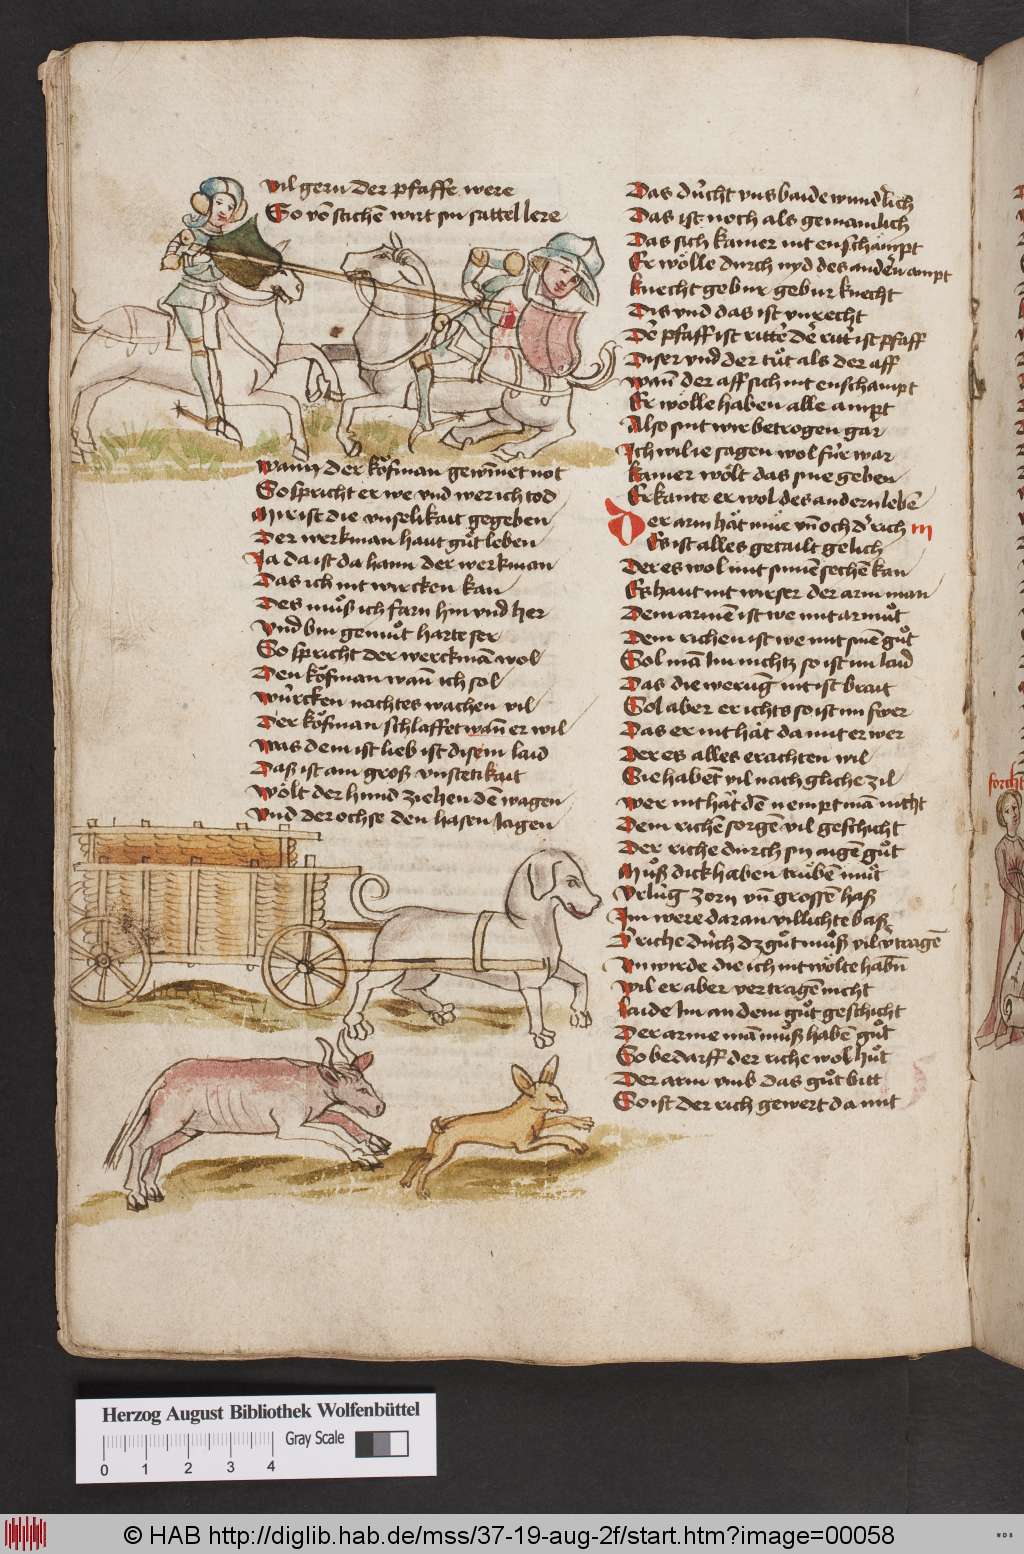 Vil gern der pfaffe were
So vō stichen wirt sin sattel lere
Wann der kofman gewinnet not
So spricht er we vnd wer ich tod
Mir ist die vnselikait gegeben
Der werkman haut gůt leben
Ja da ist da hann der werkman
Das ich nit wircken kan
Des můß ich farn hin vnd her
Vnd bin gemůt harte ser
So spricht der werckmā wol
Den kofman wañ ich sol
Würcken nachtes wachen vil
Der kofman schlaffet wañ er wil
Was dem ist lieb ist disem laid
Daß ist ain groß vnstetikait
Wölt der hund ziehen dē wagen
Vnd der ochse den hasen Jagen
Das dücht vns baide wunderlich
Das ist noch als gemainlich
Das sich kainer nit enschampt
Er wölle durch nyd des andern ampt
Knecht gebur gebur knecht
Dis vnd das ist vnrecht
Dē pfaff ist ritter dē ritter ist pfaff
Diser vnd der tůt als der aff
Wañ der aff sich nit enschampt
Er wölle haben alle ampt
Also sint wir betrogen gar
Ich wil ie sagen wol für war
Kainer wölt das sine geben
Erkante er wol des andern lebē
Der arm hät müe vñ och d' rich
Es ist alles getailt gelich
Der es wol mit sinnē sechē kan
Es haut nit wirser der arm man
Dem armē ist we mit armůt
Dem richen ist we mit sinē gůt
Sol mā im nichtz so ist im laid
Das die werūg nit ist brait
Sol aber er ichts so ist im swer
Das er nit hät da mit er wer
Der es alles erachten wil
Sie habēt vil nach gliche zil
Wer nit hät dē nempt mā nicht
Dem richē sorgē vil geschicht
Der riche durch sin aigē gůt
Můß dick haben trübē můt
Vrlüg zorn vñ grossē haß
Im were daran villichte baß
D' riche dürch dz gůt můß vil v'tragē
Vnwirde die ich nit wölte habñ
Wil er aber vertragē nicht
Laide Im an dem gůt geschicht
Der arme mā můß habē gůt
So bedarff der riche wol hůt
Der arm vmb das gůt bitt
So ist der rich gewert da mit
forcht
Herzog August Bibliothek Wolfenbüttel
Gray Scale
0 1 2 3 4
© HAB http://diglib.hab.de/mss/37-19-aug-2f/start.htm?image=00058
WDB